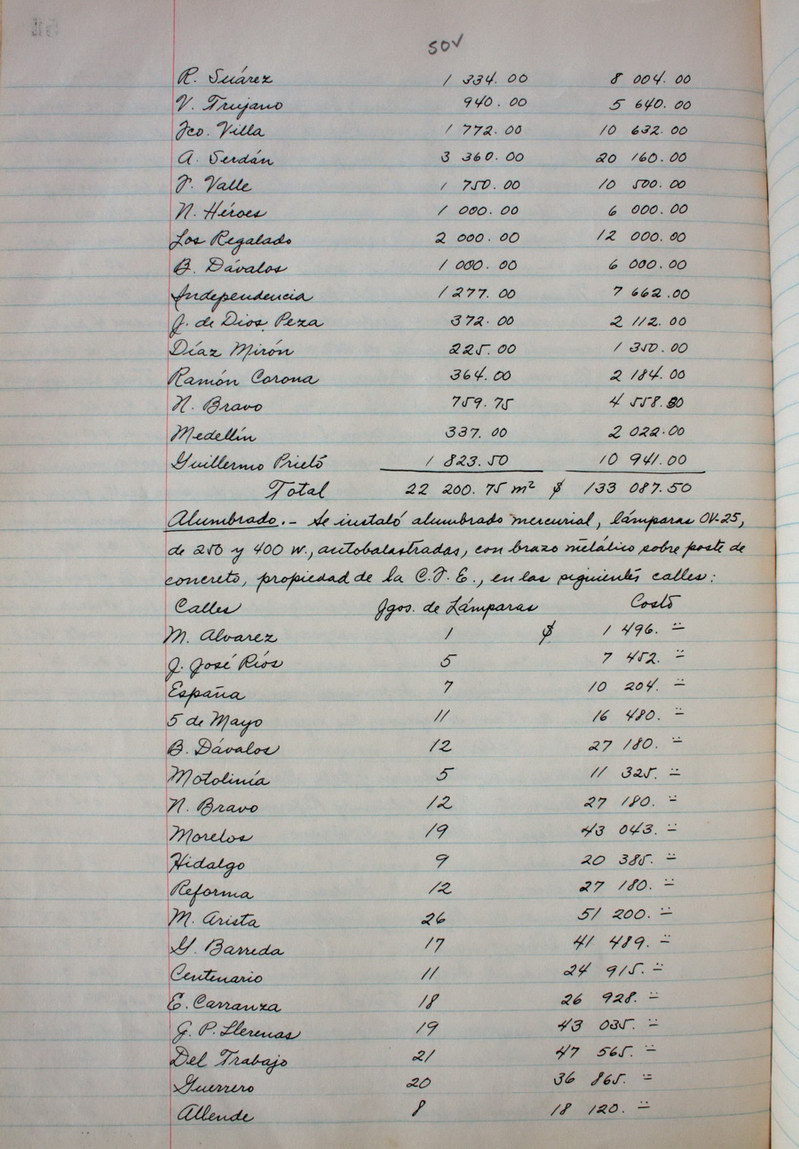 50V
R. Suárez 1 334.00 8 004.00
V. Trujano 940.00 5 640.00
Fco. Villa 1 772.00 10 632.00
A. Serdán 3 360.00 20 160.00
F. Valle 1 750.00 10 500.00
N. Héroes 1 000.00 6 000.00
Los Regalado 2 000.00 12 000.00
B. Dávalos 1 000.00 6 000.00
Independencia 1 277.00 7 662.00
J. de Dios Peza 372.00 2 112.00
Díaz Mirón 225.00 1 350.00
Ramón Corona 364.00 2 184.00
N. Bravo 759.75 4 558.50
Medellín 337.00 2 022.00
Guillermo Prieto 1 823.50 10 941.00
Total 22 200.75 m² $ 133 087.50
Alumbrado.- Se instaló alumbrado mercurial, lámparas OV-25,
de 250 y 400 w., autobalastradas, con brazo metálico sobre poste de
concreto, propiedad de la C.F.E., en las siguientes calles:
Calles Jgos. de Lámparas Costo
M. Alvarez 1 $ 1 496.=
J. José Ríos 5 7 452.=
España 7 10 204.=
5 de Mayo 11 16 480.=
B. Dávalos 12 27 180.=
Motolinía 5 11 325.=
N. Bravo 12 27 180.=
Morelos 19 43 043.=
Hidalgo 9 20 385.=
Reforma 12 27 180.=
M. Arista 26 51 200.=
G. Barreda 17 41 489.=
Centenario 11 24 915.=
E. Carranza 18 26 928.=
G. P. Llerenas 19 43 035.=
Del Trabajo 21 47 565.=
Guerrero 20 36 865.=
Allende 8 18 120.=